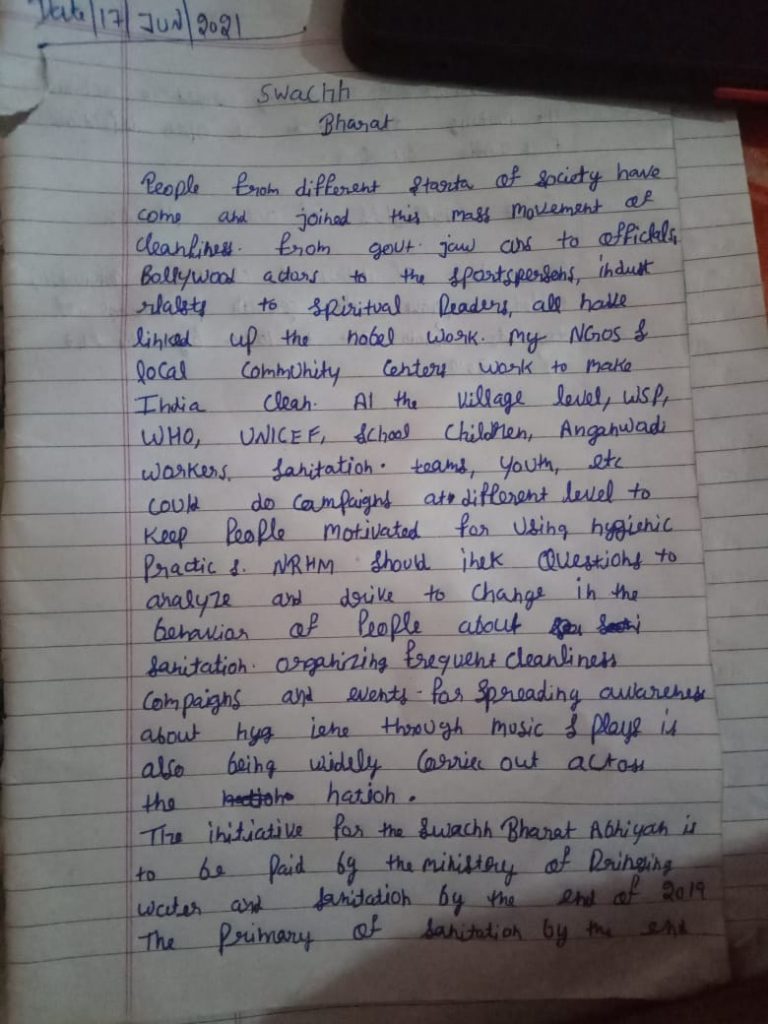 Date/17/JUN/2021
Swachh
Bharat
People from different starta of society have
come and joined this mass movement of
cleanliness. from govt. jaw ans to officials,
Bollywood actors to the sportspersons, indust
rialsts to spiritual leaders, all have
linked up the nobel work. my NGOs &
local community centers work to make
India clean. At the village level, WSP,
WHO, UNICEF, School children, Anganwadi
workers, sanitation. teams, youth, etc
could do campaigns at different level to
keep people motivated for using hygienic
Practic s. NRHM should Questions to
analyze and drive to change in the
behavior of people about
sanitation. organizing frequent cleanliness
Compaigns and events for spreading awareness
about hyg iene through music & plays is
also being widely carrie out across
the nation.
The initiative for the Swachh Bharat Abhiyan is
to be paid by the ministory of Dringing
water and sanitation by the end of 2019
The primary of sanitation by the end